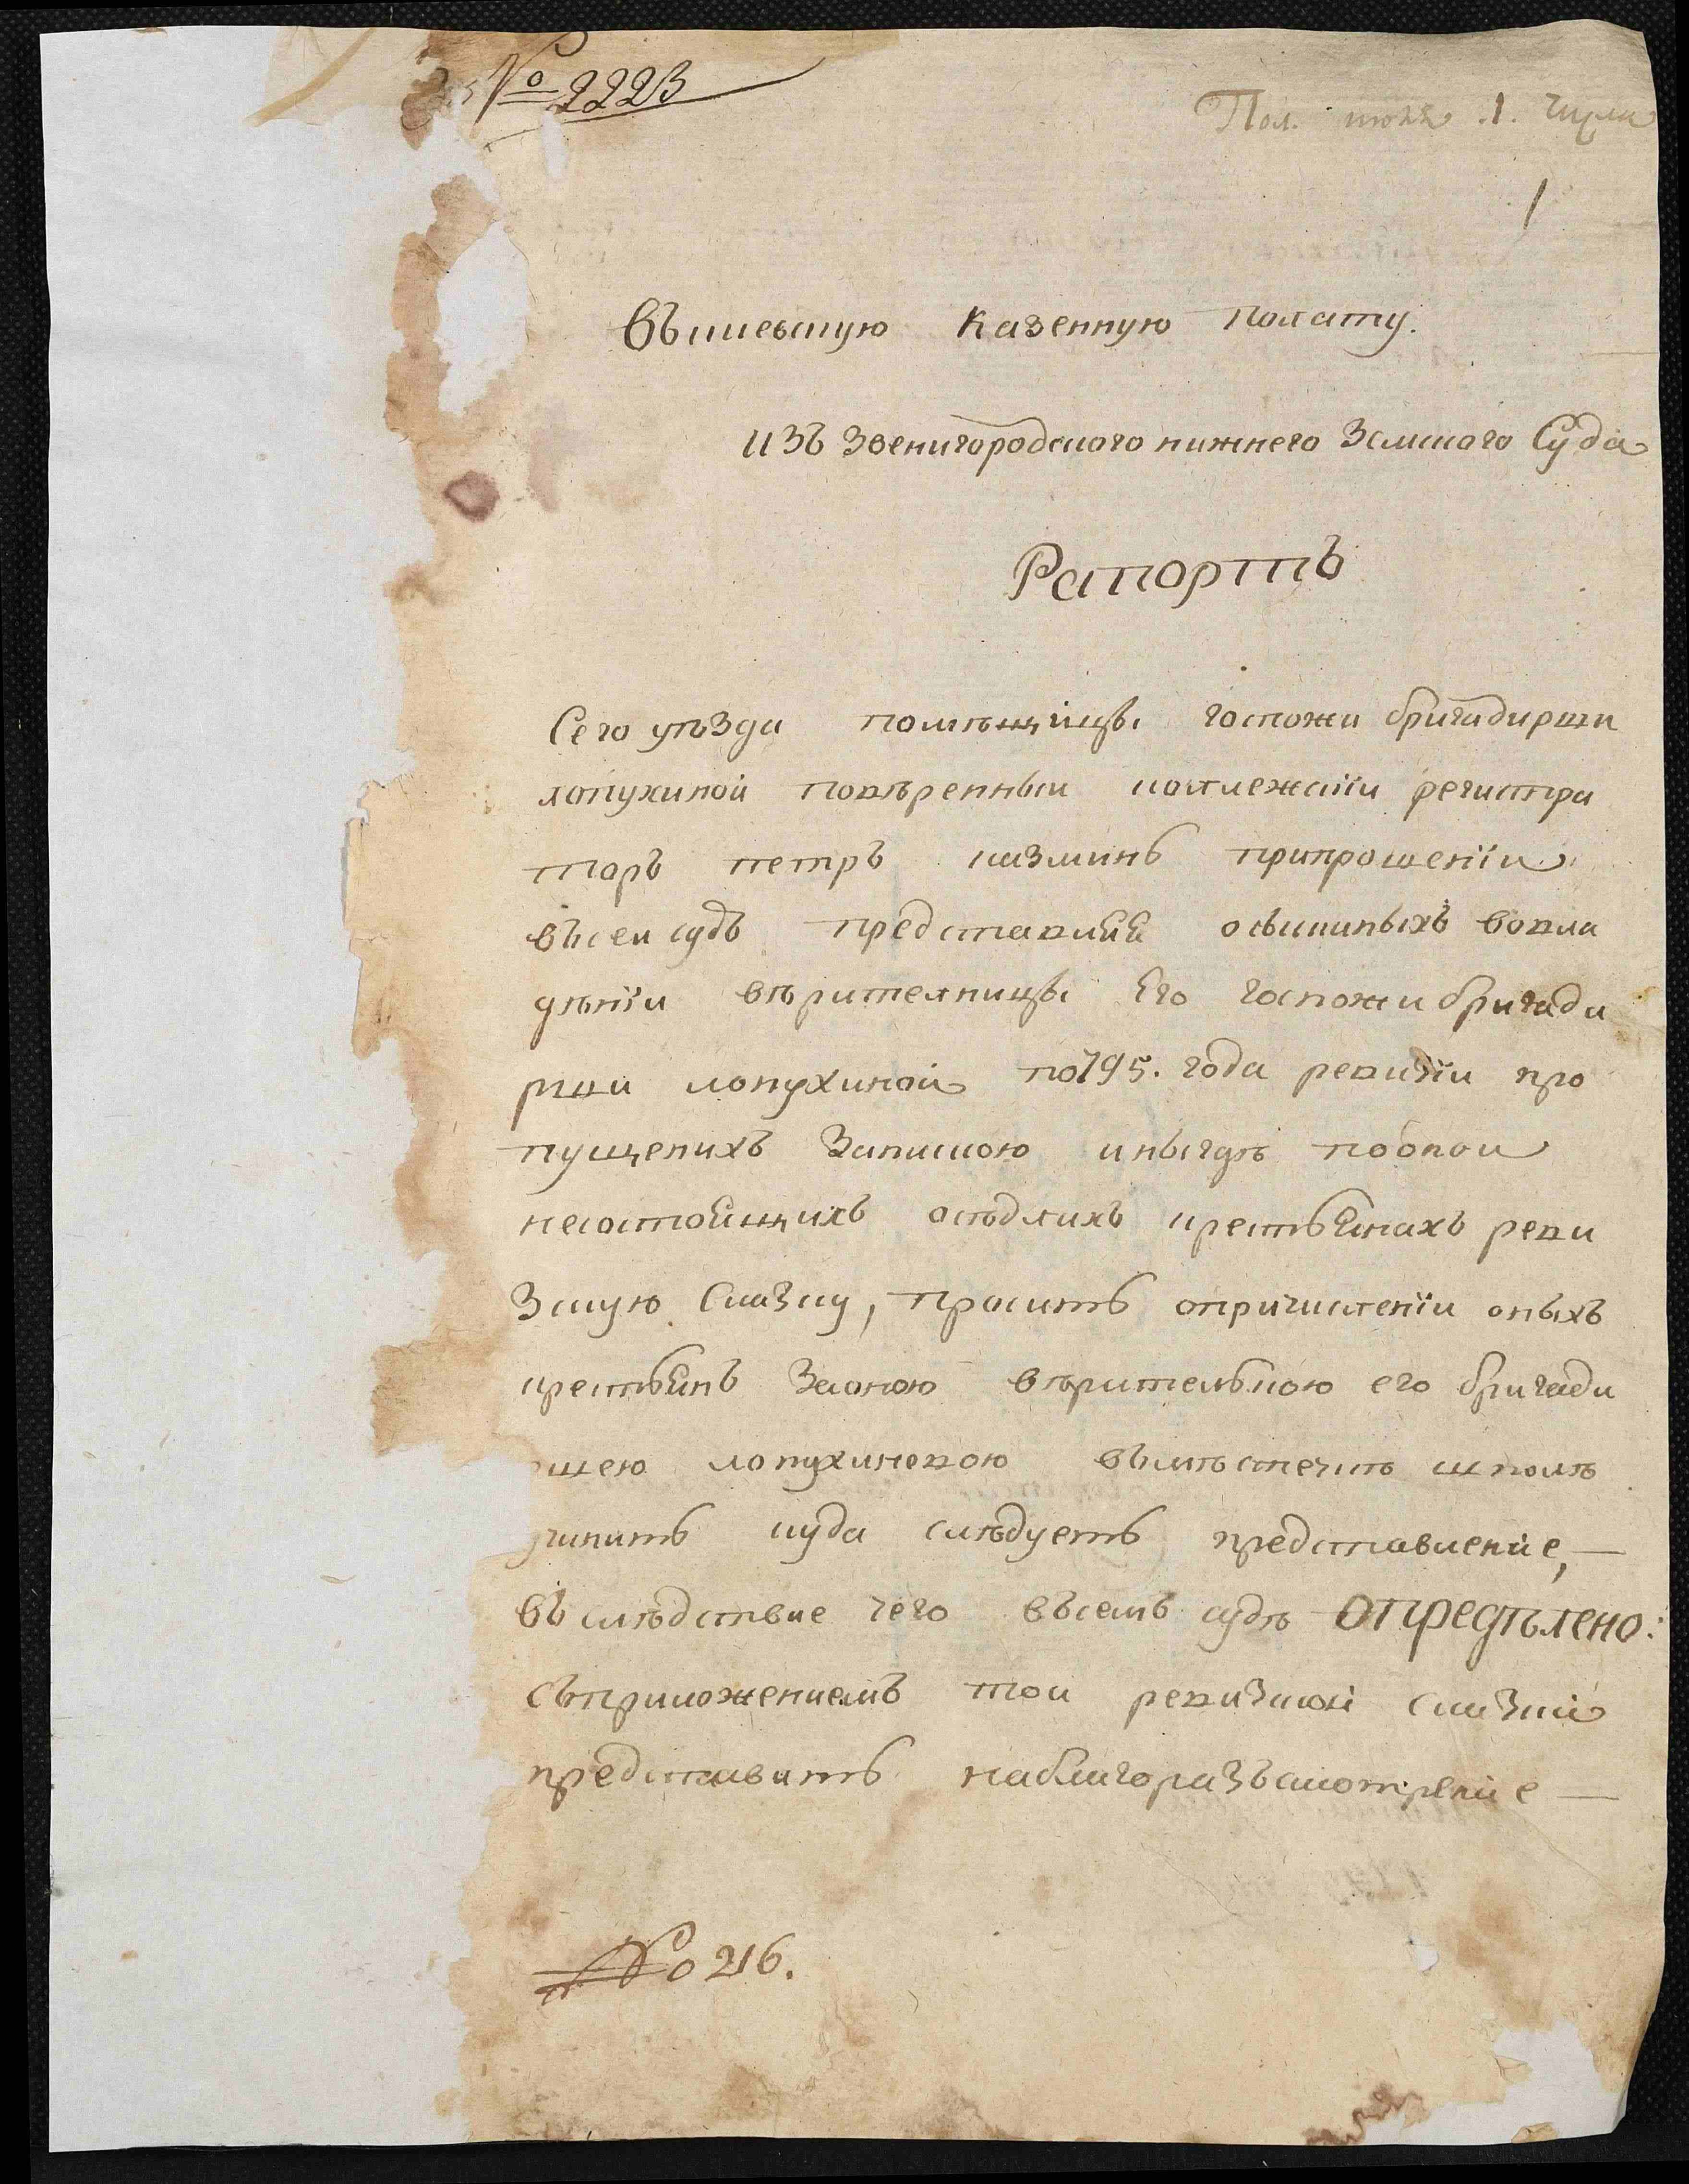 № 2223
Пол. июля .1. числа
1
Въкиевскую казенную полату.
изъ Звенигородского нижнего Земского Суда
Рапортъ
Сего уѣзда помѣщицы госпожи бригадирши
лопухиной повѣренныи коллежскіи регистра
торъ петръ казминъ припрошеніи
въсеи судъ представляя окрестьянахъ вовла
дѣніи вѣрителницы Его госпожи бригади
рши лопухиной по795. года ревизіи про
пущенихъ Запискою инынѣ поонои
несостоящихъ осѣдлихъ крестьянахъ реви
Зскую Сказку, проситъ опричисленіи оныхъ
крестьянъ Заоною вѣрительною его бригади
ршею лопухиневою вмѣстечкѣ шполѣ
учинить куда слѣдуетъ представление, —
въ слѣдствие чего въсемъ судѣ опредѣлено:
съприложениемъ тои ревизкой сказки
представить наблагоразъсмотрение —
№ 216.